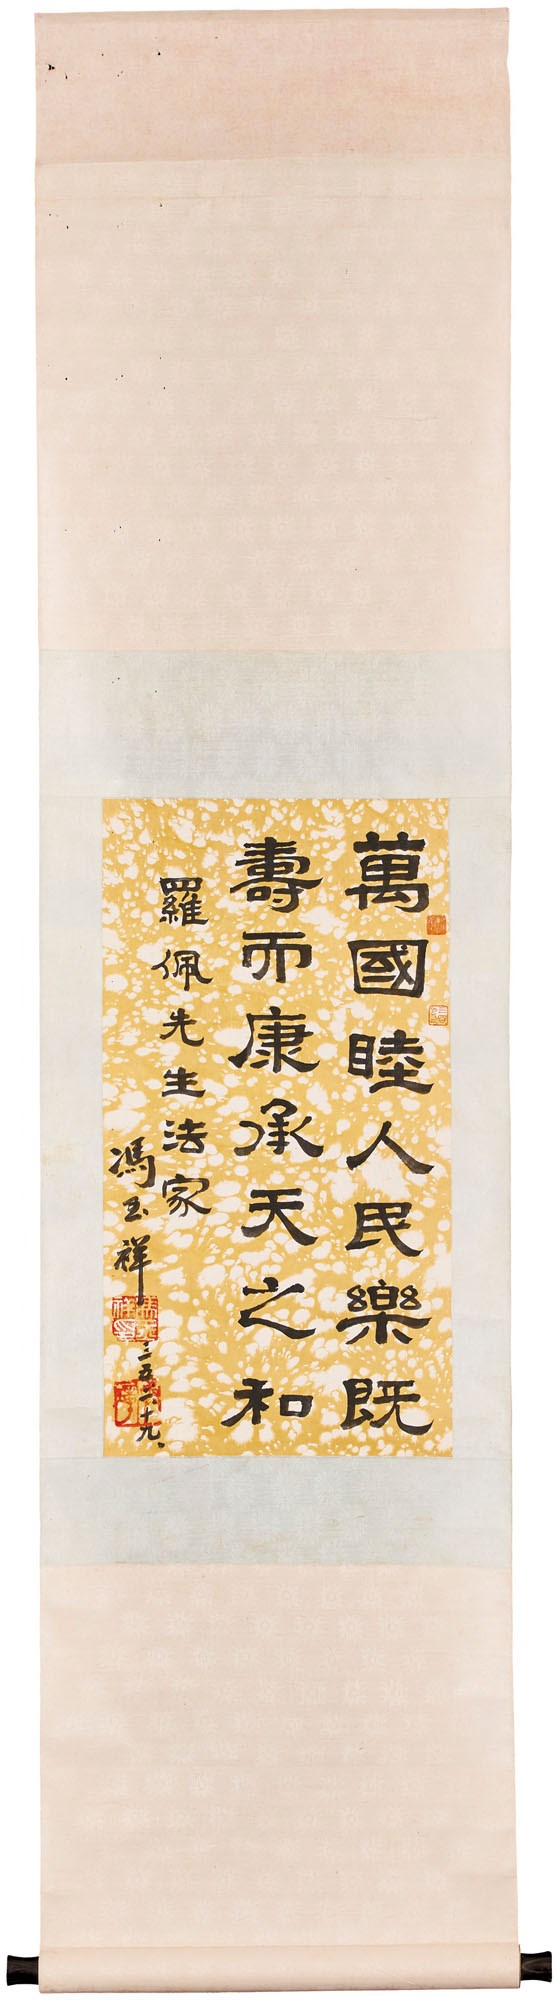 萬國睦人民樂既
壽而康承天之和
羅佩先生法家
馮玉祥
三五、一、十九、